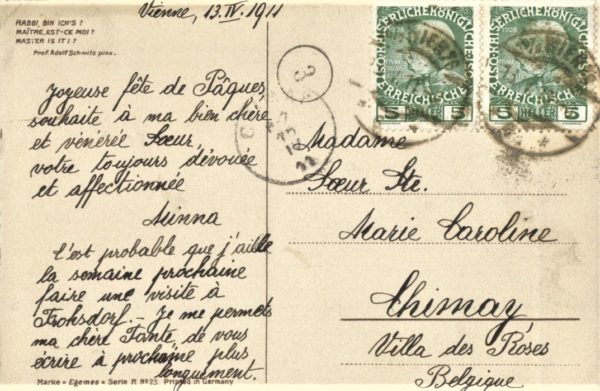 Vienne, 13.IV.1911
RABBI, BIN ICH'S?
MAÎTRE, EST-CE MOI?
MASTER IS IT I?
Prof. Adolf Schmitz pinx.
Joyeuse fête de Pâques
souhaite à ma bien chère
et vénérée Sœur,
votre toujours dévouée
et affectionnée
Minna
C'est probable que j'aille
la semaine prochaine
faire une visite à
Frohsdorf. – Je me permets
ma chère Tante, de vous
écrire à prochaine plus
longuement.
Marke «Egemes» Serie R. No 23. Printed in Germany
Madame
Sœur Ste.
Marie Caroline
Chimay
Villa des Roses
Belgique
5 HELLER 5
5 HELLER 5